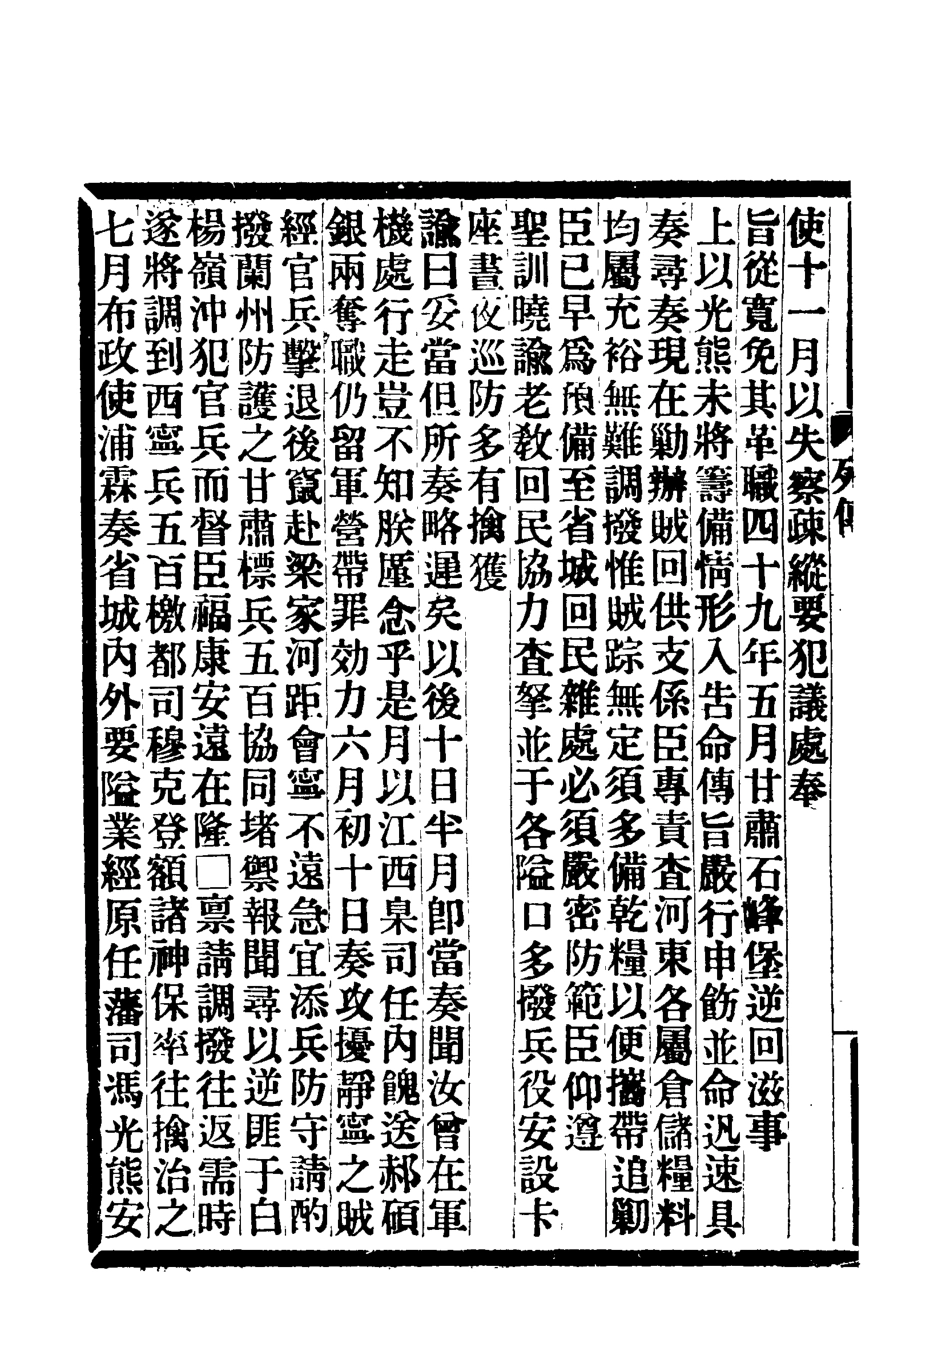 列傳
使十一月以失察疎縱要犯議處奉
旨從寬免其革職四十九年五月甘肅石峰堡逆回滋事
上以光熊未將籌備情形入告命傳旨嚴行申飭並命汎速具
奏尋奏現在勦辦賊回供支係臣專責查河東各屬倉儲糧料
均屬充裕無難調撥惟賊踪無定須多備乾糧以便攜帶追勦
臣已早爲預備至省城回民雜處必須嚴密防範臣仰遵
聖訓曉諭老教回民協力查拏並于各隘口多撥兵役安設卡
座晝夜巡防多有擒獲
諭曰妥當但所奏略遲矣以後十日半月卽當奏聞汝曾在軍
機處行走豈不知朕厪念乎是月以江西臬司任內餽送郝碩
銀兩奪職仍留軍營帶罪効力六月初十日奏攻擾靜寧之賊
經官兵擊退後竄赴梁家河距會寧不遠急宜添兵防守請酌
撥蘭州防護之甘肅標兵五百協同堵禦報聞尋以逆匪于白
楊嶺沖犯官兵而督臣福康安遠在隆□禀請調撥往返需時
遂將調到西寧兵五百檄都司穆克登額諸神保率往擒治之
七月布政使浦霖奏省城內外要隘業經原任藩司馮光熊安